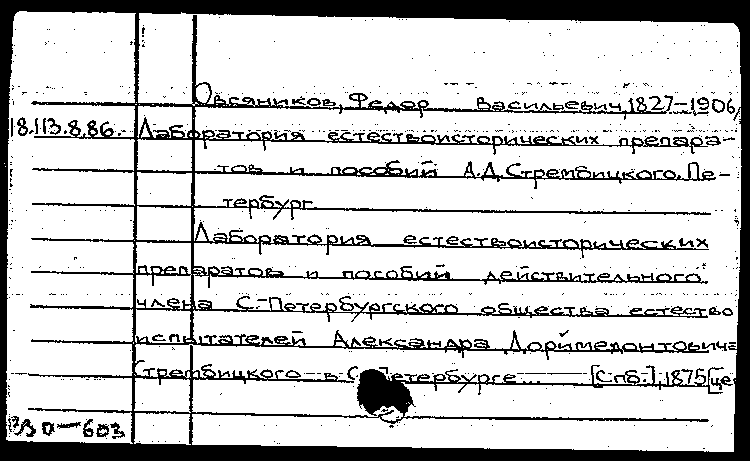 Овсяников, Федор Васильевич, 1827-1906,
18.113.8.86. Лаборатория естествоисторических препара-
тов и пособий А.Д. Стрембицкого. Пе-
тербург.
Лаборатория естествоисторических
препаратов и пособий действительного
члена С.-Петербургского общества естество
испытателей Александра Доримедонтовича
Стрембицкого в С.-Петербурге... [Спб.], 1875 [це
ВЗ 0-603